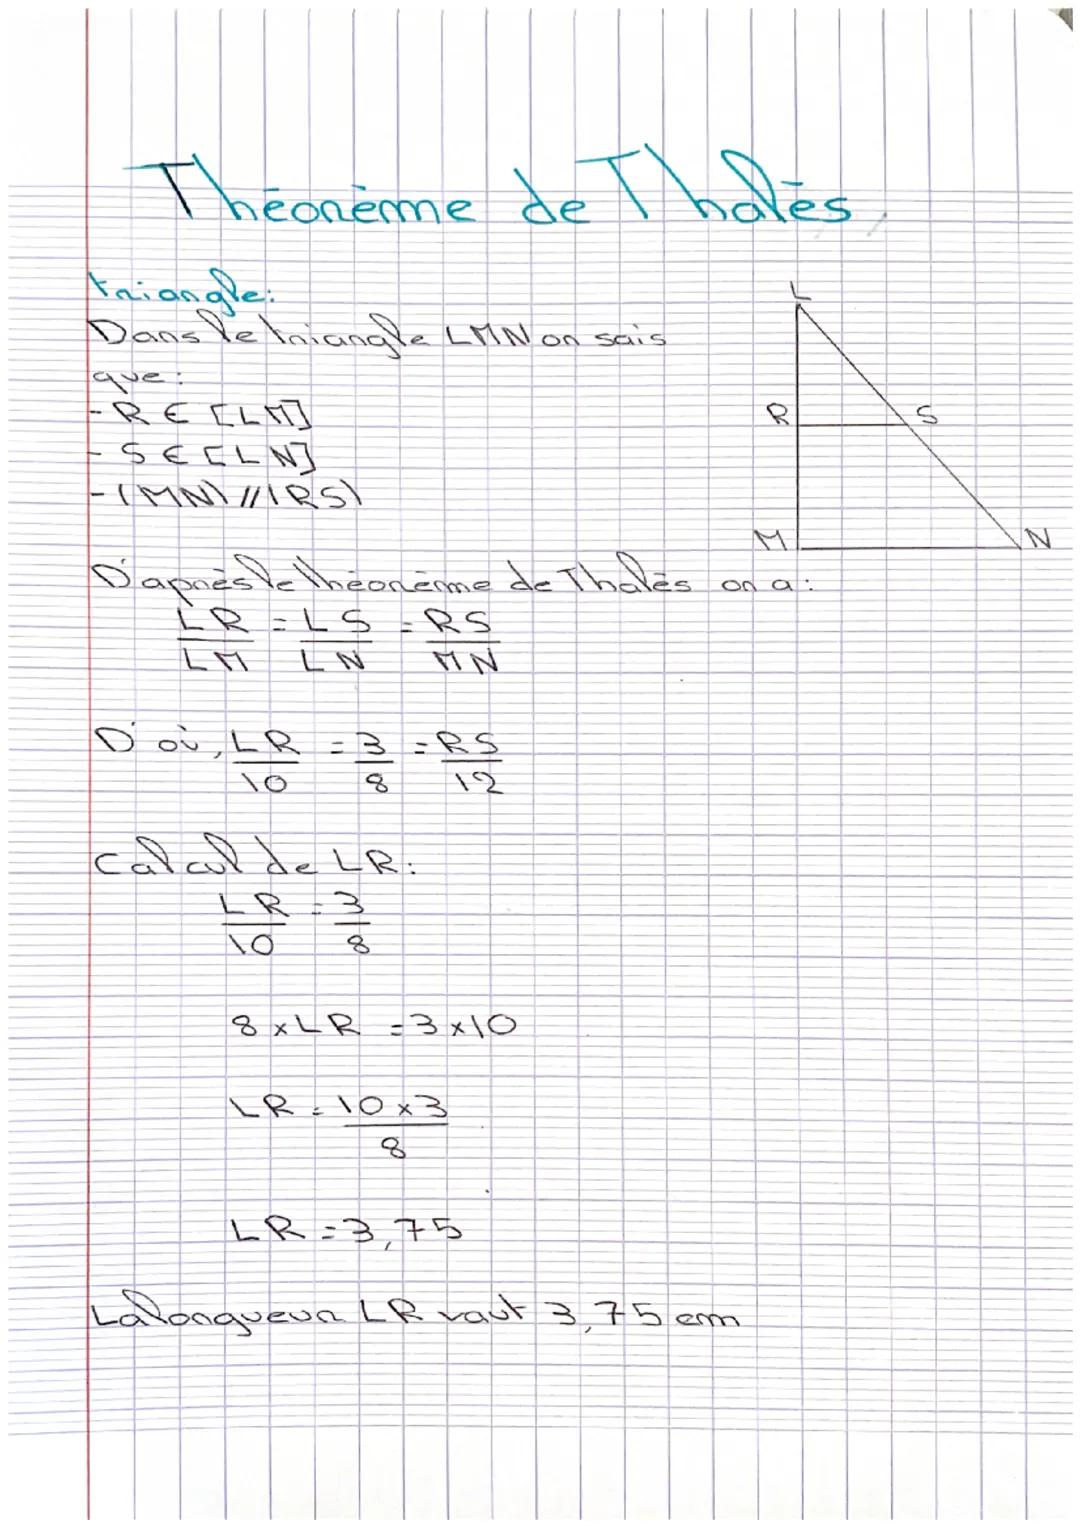 Théorème de Thalès
triangle:
Dans le triangle LMN on sais
que:
- R ∈ [LM]
- S ∈ [LN]
- (MN) // (RS)
L
R
S
M
N
D'après le théorème de Thalès on a:
LR = LS = RS
LM LN MN
D'où, LR = 3 = RS
10 8 12
Calcul de LR:
LR = 3
10 8
8 x LR = 3 x 10
LR = 10 x 3
8
LR = 3,75
La longueur LR vaut 3,75 cm